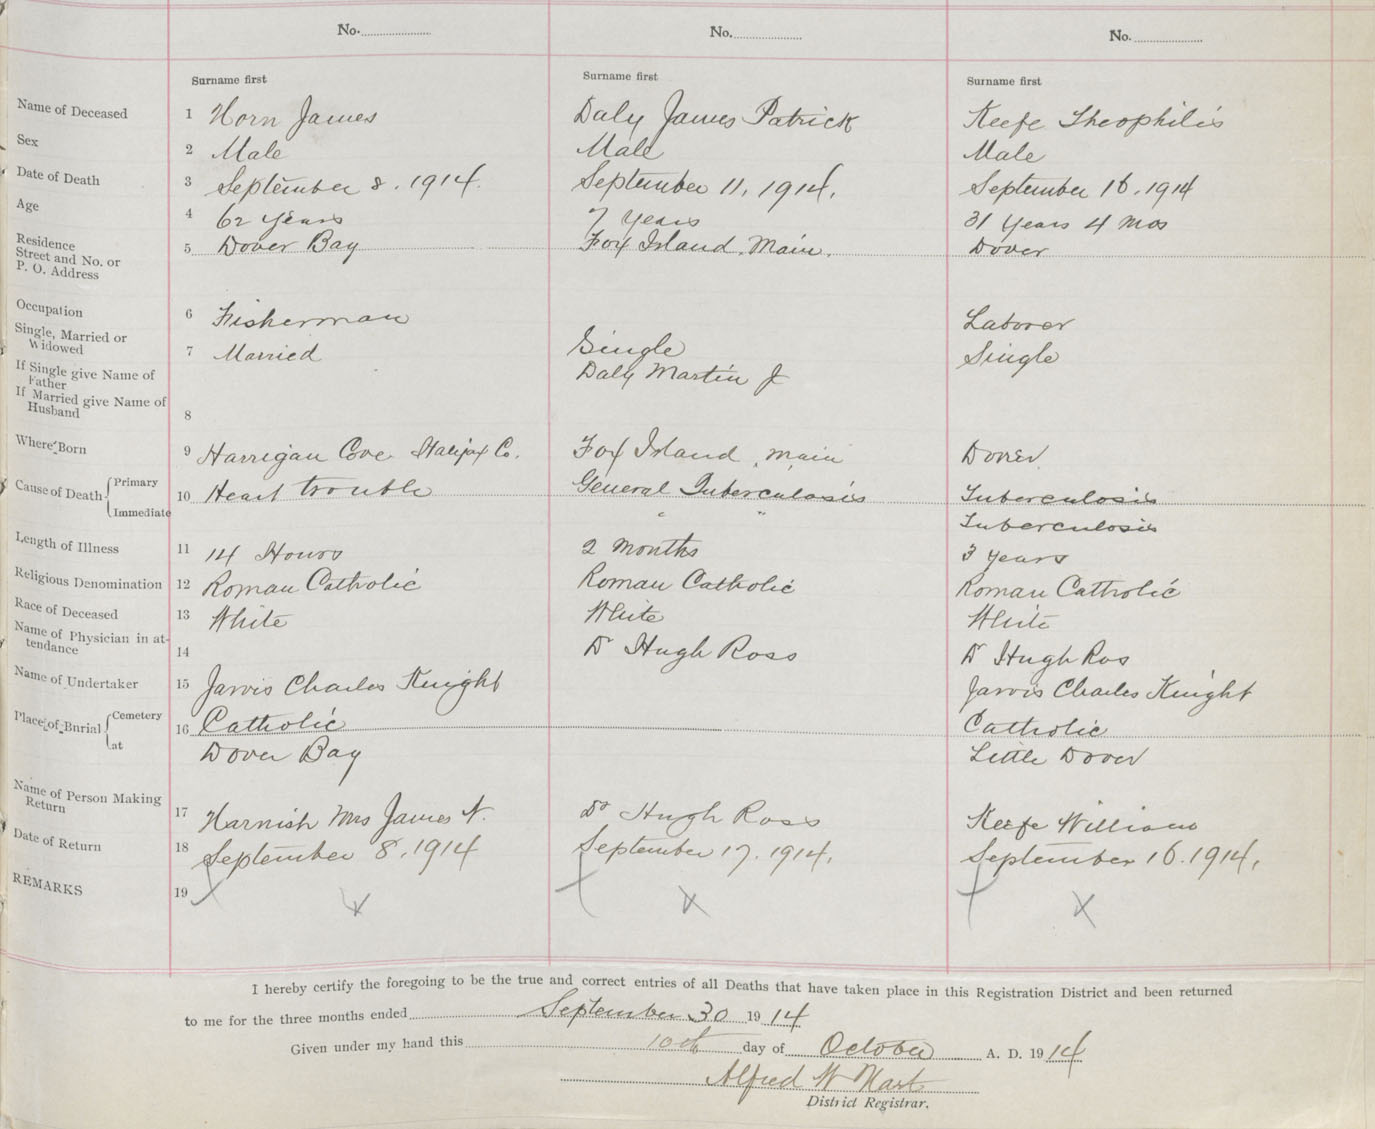 No. No. No.
Surname first Surname first Surname first
Name of Deceased 1 Horn James Daly James Patrick Keefe Theophilis
Sex 2 Male Male Male
Date of Death 3 September 8. 1914. September 11, 1914. September 16. 1914
Age 4 62 years 7 years 31 Years 4 Mos
Residence Street and No. or P. O. Address 5 Dover Bay Fox Island. Main. Dover
Occupation 6 Fisherman Laborer
Single, Married or Widowed 7 Married Single Single
If Single give Name of Father Daly Martin J
If Married give Name of Husband 8
Where Born 9 Harrigan Cove Halifax Co. Fox Island, Main Dover
Cause of Death { Primary 10 Heart trouble General Tuberculosis Tuberculosis
Immediate " " Tuberculosis
Length of Illness 11 14 Hours 2 Months 3 years
Religious Denomination 12 Roman Catholic Roman Catholic Roman Catholic
Race of Deceased 13 White White White
Name of Physician in attendance 14 Dr Hugh Ross Dr Hugh Ros
Name of Undertaker 15 Jarvis Charles Knight Jarvis Charles Knight
Place of Burial { Cemetery 16 Catholic Catholic
at Dover Bay Little Dover
Name of Person Making Return 17 Harnish Mrs James Dr Hugh Ross Keefe William
Date of Return 18 September 8, 1914 September 17. 1914. September 16. 1914.
REMARKS 19 x x x
I hereby certify the foregoing to be the true and correct entries of all Deaths that have taken place in this Registration District and been returned
to me for the three months ended September 30 19 14
Given under my hand this 10th day of October A. D. 19 14
Alfred W Hart
District Registrar.